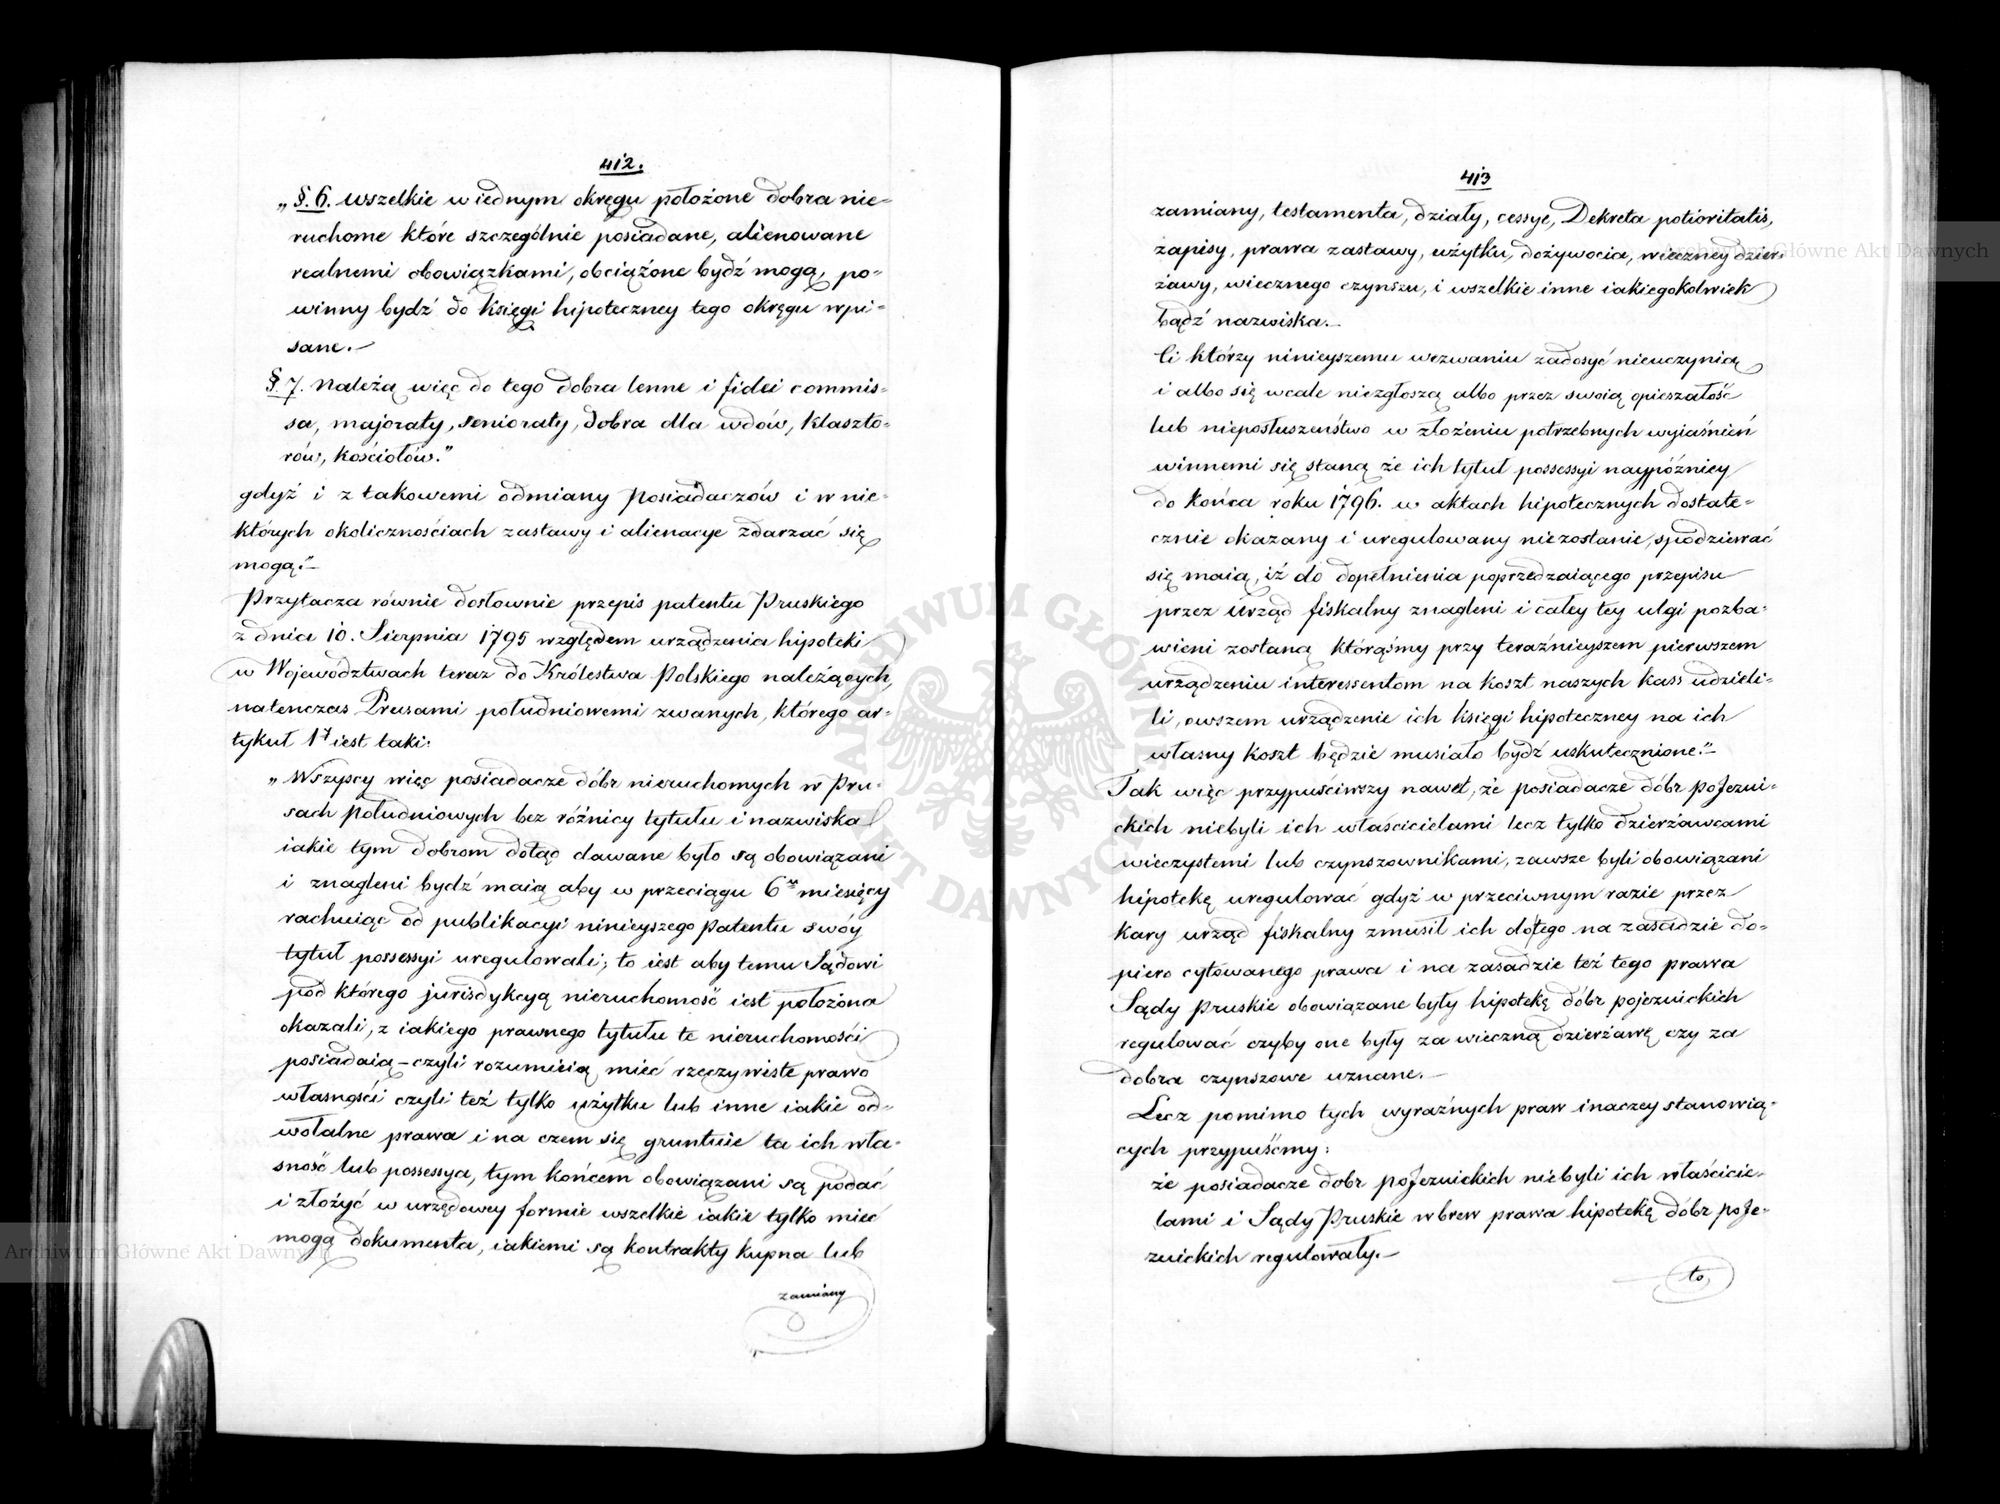 412.
„§. 6. wszelkie w iednym okręgu położone dobra nie-
ruchome które szczególnie posiadane, alienowane
realnemi obowiązkami, obciążone bydź mogą, po-
winny bydź do księgi hipoteczney tego okręgu wpi-
sane.—
§. 7. Należą więc do tego dobra lenne i fidei commis-
sa, majoraty, senioraty, dobra dla wdów, klaszto-
rów, kościołów."
gdyż i z takowemi odmiany posiadaczów i w nie-
których okolicznościach zastawy i alienacye zdarzać się
mogą."—
Przytacza równie dosłownie przepis patentu Pruskiego
z dnia 10. Sierpnia 1795 względem urządzenia hipoteki
w Województwach teraz do Królestwa Polskiego należących,
natenczas Prusami południowemi zwanych, którego ar-
tykuł 1t iest taki:
„Wszyscy więc posiadacze dóbr nieruchomych w Pru-
sach południowych bez różnicy tytułu i nazwiska
iakie tym dobrom dotąd dawane było są obowiązani
i znagleni bydź maią aby w przeciągu 6u miesięcy
rachuiąc od publikacyi ninieyszego patentu swóy
tytuł possessyi uregulowali; to iest aby temu Sądowi
pod którego jurisdykcyą nieruchomość iest położona
okazali, z iakiego prawnego tytułu te nieruchomości
posiadaią — czyli rozumieią mieć rzeczywiste prawo
własności czyli też tylko użytku lub inne iakie od-
wołalne prawa i na czem się gruntuie ta ich wła-
sność lub possessya, tym końcem obowiązani są podać
i złożyć w urzędowey formie wszelkie iakie tylko mieć
mogą dokumenta, iakiemi są kontrakty kupna lub
zamiany
413
zamiany, testamenta, działy, cessye, Dekreta potioritatis,
zapisy, prawa zastawy, użytku, dożywocia, wieczney dzier-
żawy, wiecznego czynszu, i wszelkie inne iakiegokolwiek
bądź nazwiska.—
Ci którzy ninieyszemu wezwaniu zadosyć nieuczynią
i albo się wcale niezgłoszą albo przez swoią opieszałość
lub nieposłuszeństwo w złożeniu potrzebnych wyiaśnień
winnemi się staną że ich tytuł possessyi naypóźniey
do końca roku 1796. w aktach hipotecznych dostate-
cznie okazany i uregulowany niezostanie, spodziewać
się maią, iż do dopełnienia poprzedzaiącego przepisu
przez Urząd fiskalny znagleni i całey tey ulgi pozba-
wieni zostaną którąśmy przy teraźnieyszem pierwszem
urządzeniu interessentom na koszt naszych kass udzieli-
li, owszem urządzenie ich księgi hipoteczney na ich
własny koszt będzie musiało bydź uskutecznione."—
Tak więc przypuściwszy nawet, że posiadacze dóbr poJezui-
ckich niebyli ich właścicielami lecz tylko dzierżawcami
wieczystemi lub czynszownikami, zawsze byli obowiązani
hipotekę uregulować gdyż w przeciwnym razie przez
kary urząd fiskalny zmusił ich do tego na zasadzie do-
piero cytowanego prawa i na zasadzie też tego prawa
Sądy Pruskie obowiązane były hipotekę dóbr pojezuickich
regulować czyby one były za wieczną dzierżawę czy za
dobra czynszowe uznane.—
Lecz pomimo tych wyraźnych praw inaczey stanowią-
cych przypuśćmy:
że posiadacze dobr poJezuickich niebyli ich właścicie-
lami i Sądy Pruskie wbrew prawa hipotekę dóbr poJe-
zuickich regulowały.—
to,
Archiwum Główne Akt Dawnych
Archiwum Główne Akt Dawnych
ARCHIWUM GŁÓWNE AKT DAWNYCH